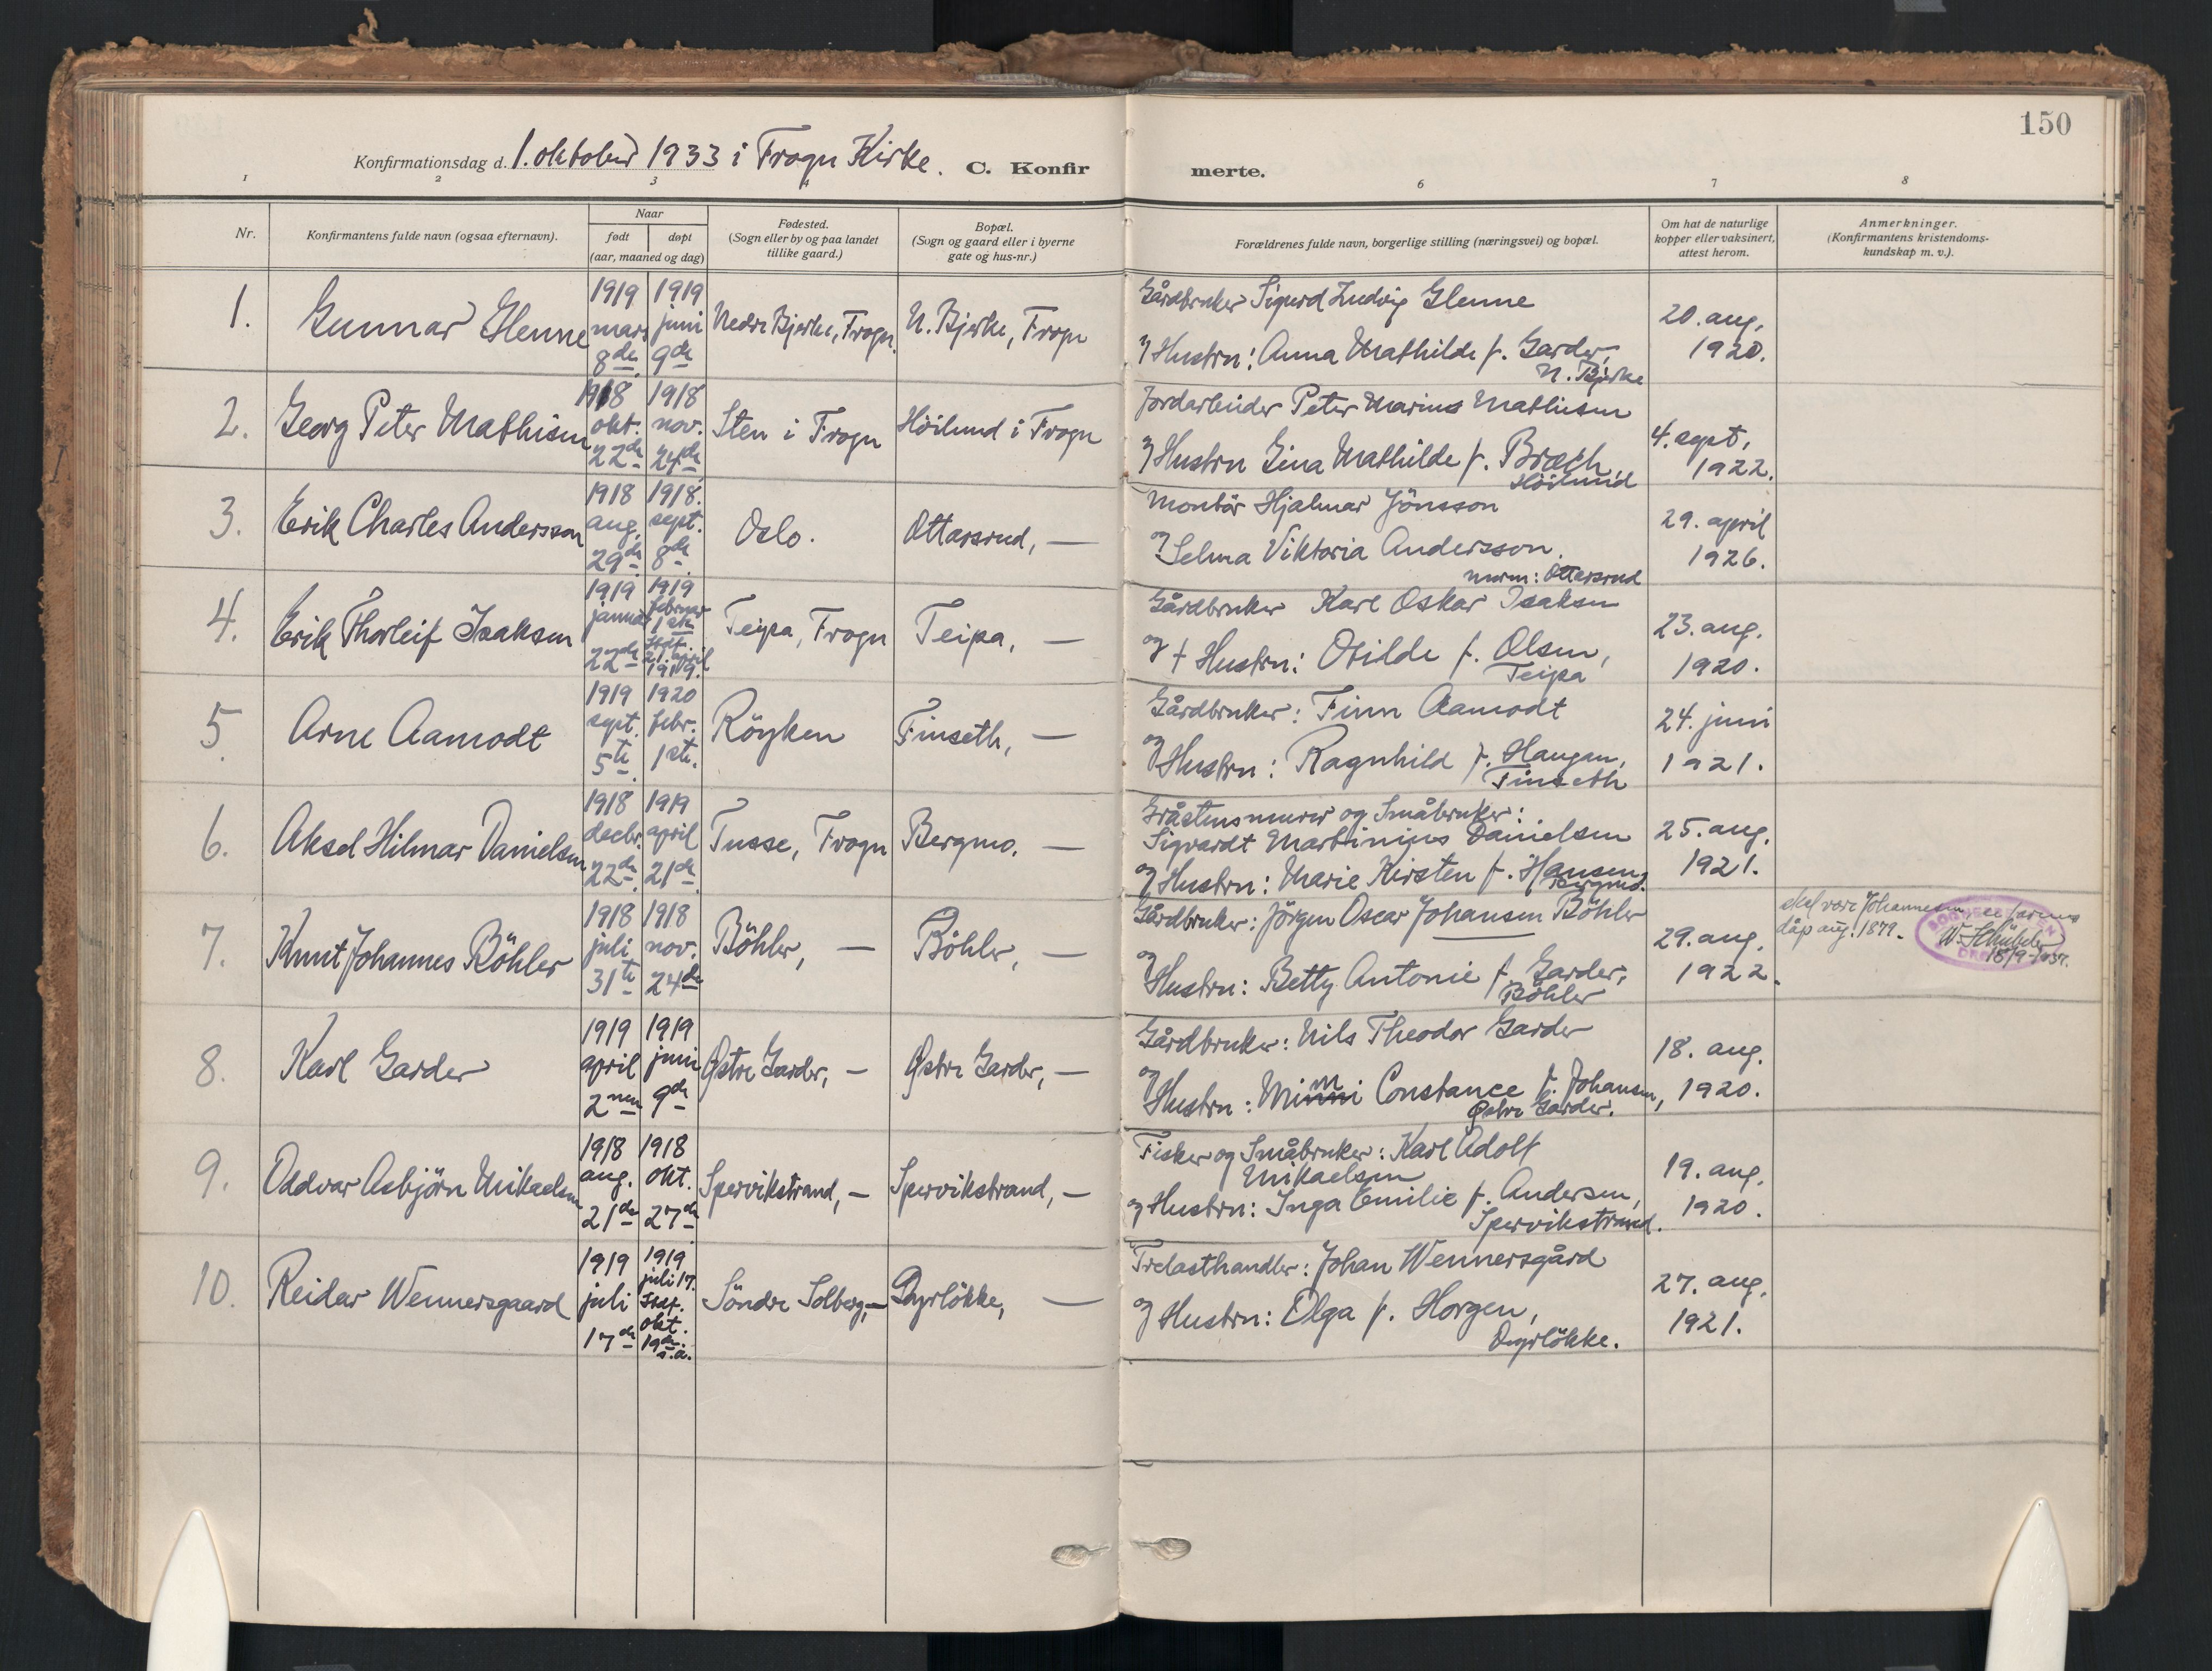 150
Konfirmationsdag d. 1. oktober 1933 i Frogn Kirke. C. Konfirmerte.
1 2 3 4 6 7 8
Nr.
Konfirmantens fulde navn (ogsaa efternavn).
Naar
født
døpt
(aar, maaned og dag)
Fødested.
(Sogn eller by og paa landet
tillike gaard.)
Bopæl.
(Sogn og gaard eller i byerne
gate og hus-nr.)
Forældrenes fulde navn, borgerlige stilling (næringsvei) og bopæl.
Om hat de naturlige
kopper eller vaksinert,
attest herom.
Anmerkninger.
(Konfirmantens kristendoms-
kundskap m. v.).
1.
Gunnar Glenne
1919
mars
8de
1919
juni
9de
Nedre Bjerke, Frogn.
N. Bjerke, Frogn
Gårdbruker Sigurd Ludvig Glenne
og Hustru: Anna Mathilde f. Garder,
N. Bjerke
20. aug.
1920.
2.
Georg Peter Mathisen
1918
okt.
22de
1918
nov.
24de
Sten i Frogn
Höilund i Frogn
Jordarbeider Peter Marius Mathisen
og Hustru Gina Mathilde f. Bræch,
Höilund
4. sept,
1922.
3.
Erik Charles Andersson
1918
aug.
29de
1918.
sept.
8de
Oslo.
Ottarsrud, —
Montör Hjalmar Jönsson
og Selma Viktoria Andersson.
Ottersrud
29. april
1926.
4.
Erik Thorleif Isaksen
1919
januar
22de
1919
februar
1ste
stadf.
21. april
1919.
Teipa, Frogn
Teipa, —
Gårdbruker Karl Oskar Isaksen
og † Hustru: Otilde f. Olsen,
Teipa
23. aug.
1920.
5.
Arne Aamodt
1919
sept.
5te
1920
febr.
1ste.
Röyken
Finseth, —
Gårdbruker: Finn Aamodt
og Hustru: Ragnhild f. Haugan,
Finseth
24. juni
1921.
6.
Aksel Hilmar Danielsen
1918
decbr.
22de
1919
april
21de
Tusse, Frogn
Bergmo. —
Gråstensmurer og Småbruker:
Sigvardt Martinius Danielsen
og Hustru: Marie Kirsten f. Hansen,
Bergmo.
25. aug.
1921.
7.
Knut Johannes Böhler
1918
juli
31te
1918
nov.
24de
Böhler, —
Böhler, —
Gårdbruker: Jörgen Oscar Johansen Böhler
og
Hustru: Betty Antonie f. Garder,
Böhler
29. aug.
1922.
skal være Johannesen, se farens
dåp aug. 1879.
W. Schübeler
18/9-1937.
8.
Karl Garder
1919
april
2nen
1919
juni
9de
Østre Garder, —
Østre Garder, —
Gårdbruker: Nils Theodor Garder
og
Hustru: Mimmi Constance f. Johansen,
Østre Garder.
18. aug.
1920.
9.
Oddvar Asbjörn Mikaelsen
1918
aug.
21de
1918
okt.
27de
Spervikstrand, —
Spervikstrand, —
Fisker og Småbruker: Karl Adolf
Mikaelsen
og Hustru: Inga Emilie f. Andersen,
Spervikstrand.
19. aug.
1920.
10.
Reidar Wennersgaard
1919
juli
17de
1919
juli 17.
stadf.
okt.
19de.
s.å.
Söndre Solberg, —
Dyrlökke, —
Trelasthandler: Johan Wennersgård
og Hustru: Olga f. Horgen,
Dyrlökke.
27. aug.
1921.